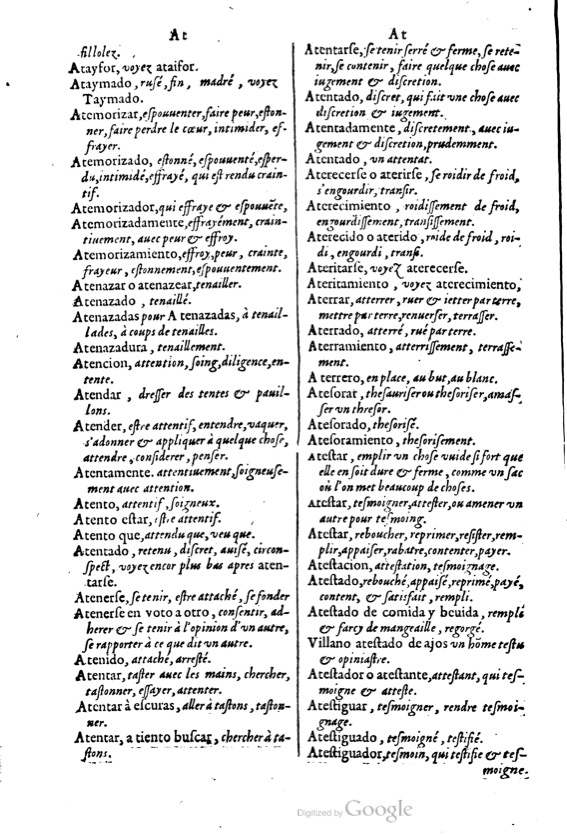 At
fillolez.
Atayfor, voyez ataifor.
Ataymado, rusé, fin, madré, voyez
Taymado.
Atemorizar, eſpouuenter, faire peur, eſton-
ner, faire perdre le cœur, intimider, ef-
frayer.
Atemorizado, eſtonné, eſpouuenté, eſper-
du, intimidé, effrayé, qui eſt rendu crain-
tif.
Atemorizador, qui effraye & eſpouuēte,
Atemorizadamente, effrayément, crain-
tiuement, auec peur & effroy.
Atemorizamiento, effroy, peur, crainte,
frayeur, eſtonnement, eſpouuentement.
Atenazar o atenazear, tenailler.
Atenazado, tenaillé.
Atenazadas pour A tenazadas, à tenail-
lades, à coups de tenailles.
Atenazadura, tenaillement.
Atencion, attention, ſoing, diligence, en-
tente.
Atendar, dreſſer des tentes & pauil-
lons.
Atender, eſtre attentif, entendre, vaquer,
s'adonner & appliquer à quelque choſe,
attendre, conſiderer, penſer.
Atentamente. attentiuement, ſoigneuſe-
ment auec attention.
Atento, attentif, ſoigneux.
Atento eſtar, eſtre attentif.
Atento que, attendu que, veu que.
Atentado, retenu, diſcret, auiſé, circon-
ſpect, voyez encor plus bas apres aten-
tarſe.
Atenerſe, ſe tenir, eſtre attaché, ſe fonder
Atenerſe en voto a otro, conſentir, ad-
herer & ſe tenir à l'opinion d'un autre,
ſe rapporter à ce que dit un autre.
Atenido, attaché, arreſté.
Atentar, taſter auec les mains, chercher,
taſtonner, eſſayer, attenter.
Atentar à eſcuras, aller à taſtons, taſton-
ner.
Atentar, a tiento buſcar, chercher à ta-
ſtons.
At
Atentarſe, ſe tenir ſerré & ferme, ſe rete-
nir, ſe contenir, faire quelque choſe auec
iugement & diſcretion.
Atentado, diſcret, qui fait vne choſe auec
diſcretion & iugement.
Atentadamente, diſcretement, auec iu-
gement & diſcretion, prudemment.
Atentado, un attentat.
Aterecerſe o aterirſe, ſe roidir de froid,
s'engourdir, tranſir.
Aterecimiento, roidiſſement de froid,
engourdiſſement, tranſiſſement.
Aterecido o aterido, roide de froid, roi-
di, engourdi, tranſi.
Ateritarſe, voyez aterecerſe.
Ateritamiento, voyez aterecimiento,
Aterrar, atterrer, ruer & ietter par terre,
mettre par terre, renuerſer, terraſſer.
Aterrado, atterré, rué par terre.
Aterramiento, atterriſſement, terraſſe-
ment.
A terrero, en place, au but, au blanc.
Ateſorar, theſauriſer ou theſoriſer, amaſ-
ſer un threſor.
Ateſorado, theſoriſé.
Ateſoramiento, theſoriſement.
Ateſtar, emplir un choſe vuide ſi fort que
elle en ſoit dure & ferme, comme un ſac
où l'on met beaucoup de choſes.
Ateſtar, teſmoigner, atteſter, ou amener un
autre pour teſmoing.
Ateſtar, reboucher, reprimer, reſiſter, rem-
plir, appaiſer, rabatre, contenter, payer.
Ateſtacion, atteſtation, teſmoignage.
Ateſtado, rebouché, appaiſé, reprimé, payé,
content, & ſatisfait, rempli.
Ateſtado de comida y beuida, rempli
& farcy de mangeaille, regorgé.
Villano ateſtado de ajos un hōme teſtu
& opiniaſtre.
Ateſtador o ateſtante, atteſtant, qui teſ-
moigne & atteſte.
Ateſtiguar, teſmoigner, rendre teſmoi-
gnage.
Ateſtiguado, teſmoigné, teſtifié.
Ateſtiguador, teſmoin, qui teſtifie & teſ-
moigne.
Digitized by Google